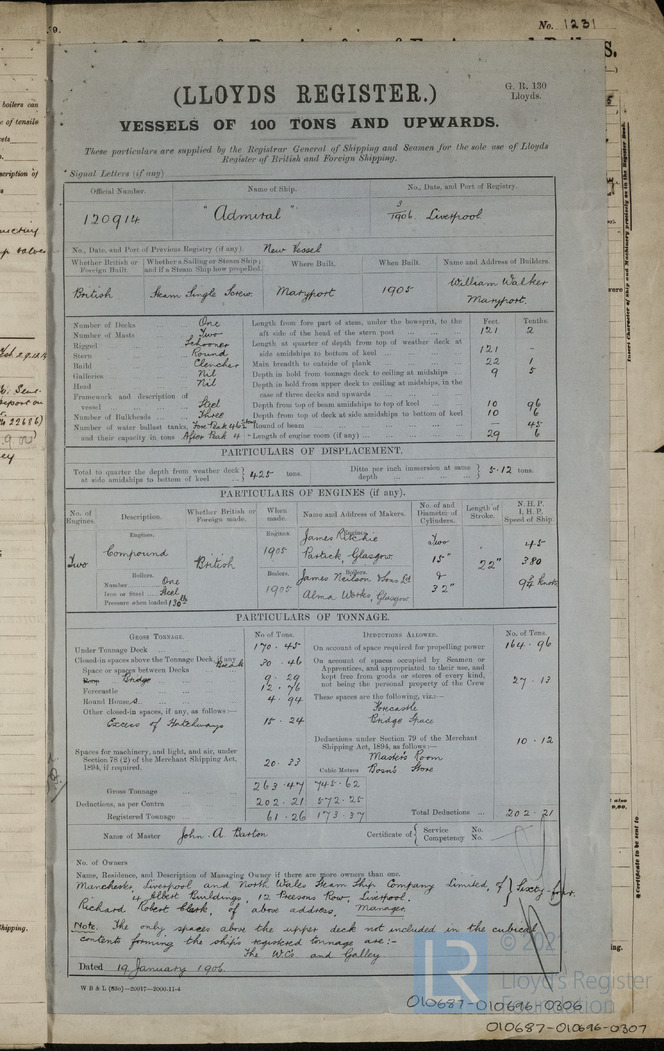 No. 1231
(LLOYDS REGISTER.)
G. R. 130
Lloyds.
VESSELS OF 100 TONS AND UPWARDS.
These particulars are supplied by the Registrar General of Shipping and Seamen for the sole use of Lloyds
Register of British and Foreign Shipping.
Signal Letters (if any)
Official Number. Name of Ship. No., Date, and Port of Registry.
120914 "Admiral" 3/1906. Liverpool
No., Date, and Port of Previous Registry (if any). New Vessel
Whether British or Foreign Built. Whether a Sailing or Steam Ship; and if a Steam Ship how propelled. Where Built. When Built. Name and Address of Builders.
British Steam Single Screw Maryport 1905 William Walker
Maryport.
Number of Decks One
Number of Masts Two
Rigged Schooner
Stern Round
Build Clencher
Galleries Nil
Head Nil
Framework and description of
vessel Steel
Number of Bulkheads Three
Number of water ballast tanks, Fore Peak 46½ tons
and their capacity in tons After Peak 4
Feet. Tenths.
Length from fore part of stem, under the bowsprit, to the
aft side of the head of the stern post 121 2
Length at quarter of depth from top of weather deck at
side amidships to bottom of keel 121 -
Main breadth to outside of plank 22 1
Depth in hold from tonnage deck to ceiling at midships 9 5
Depth in hold from upper deck to ceiling at midships, in the
case of three decks and upwards
Depth from top of beam amidships to top of keel 10 96
Depth from top of deck at side amidships to bottom of keel 10 6
Round of beam - 45
Length of engine room (if any) 29 6
PARTICULARS OF DISPLACEMENT.
Total to quarter the depth from weather deck at side amidships to bottom of keel } 425 tons. Ditto per inch immersion at same depth } 5.12 tons.
PARTICULARS OF ENGINES (if any).
No. of Engines. Description. Whether British or Foreign made. When made. Name and Address of Makers. No. of and Diameter of Cylinders. Length of Stroke. N. H. P. I. H. P. Speed of Ship.
Engines. Engines Engines.
Two Compound British 1905 James Ritchie
Partick, Glasgow Two 15" & 32" 22" 45 380 9¼ Knots
Boilers. Boilers. Boilers.
Number One
Iron or Steel Steel
Pressure when loaded 130 lb
1905 James Neilson & Sons Ltd
Alma Works, Glasgow
PARTICULARS OF TONNAGE.
GROSS TONNAGE. No. of Tons.
Under Tonnage Deck 170.45
Closed-in spaces above the Tonnage Deck, if any Break 30.46
Space or spaces between Decks
Bridge 9.29
Forecastle 12.76
Round Houses 4.94
Other closed-in spaces, if any, as follows:-
Excess of Hatchways 15.24
Spaces for machinery, and light, and air, under
Section 78 (2) of the Merchant Shipping Act,
1894, if required. 20.33
Cubic Metres
Gross Tonnage 263.47 745.62
Deductions, as per Contra 202.21 572.25
Registered Tonnage 61.26 173.37
DEDUCTIONS ALLOWED. No. of Tons.
On account of space required for propelling power 164.96
On account of spaces occupied by Seamen or
Apprentices, and appropriated to their use, and
kept free from goods or stores of every kind,
not being the personal property of the Crew 27.13
These spaces are the following, viz.:-
Forecastle
Bridge Space
Deductions under Section 79 of the Merchant
Shipping Act, 1894, as follows:- 10.12
Master's Room
Bosn's Store
Total Deductions 202.21
Name of Master John A Barton Certificate of { Service No.
Competency No.
No. of Owners
Name, Residence, and Description of Managing Owner if there are more owners than one.
Manchester, Liverpool and North Wales Steam Ship Company Limited, of } Sixty-four.
4 Albert Buildings, 12 Preesons Row, Liverpool.
Richard Robert Clark, of above address, Manager.
Note. The only spaces above the upper deck not included in the cubical
contents forming the ship's registered tonnage are:-
The W.C's and Galley
Dated 19 January 1906.
W B & L (83o)-20917-2000.11-4
© 2021
LR
Lloyd's Register
Foundation
010687-010696-0306
010687-010696-0307